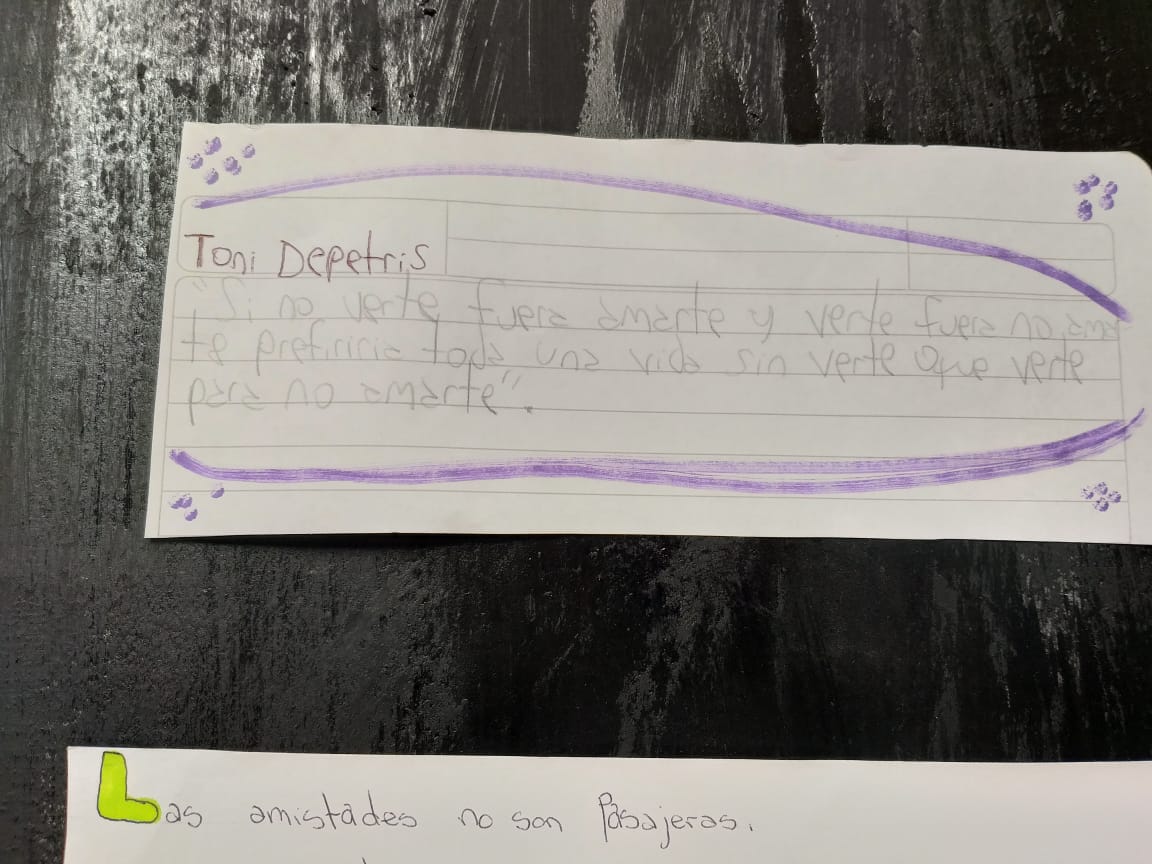 Toni Depetris
"Si no verte fuera amarte y verte fuera no ama
te prefiriria toda una vida sin verte que verte
para no amarte".
Las amistades no son Pasajeras.